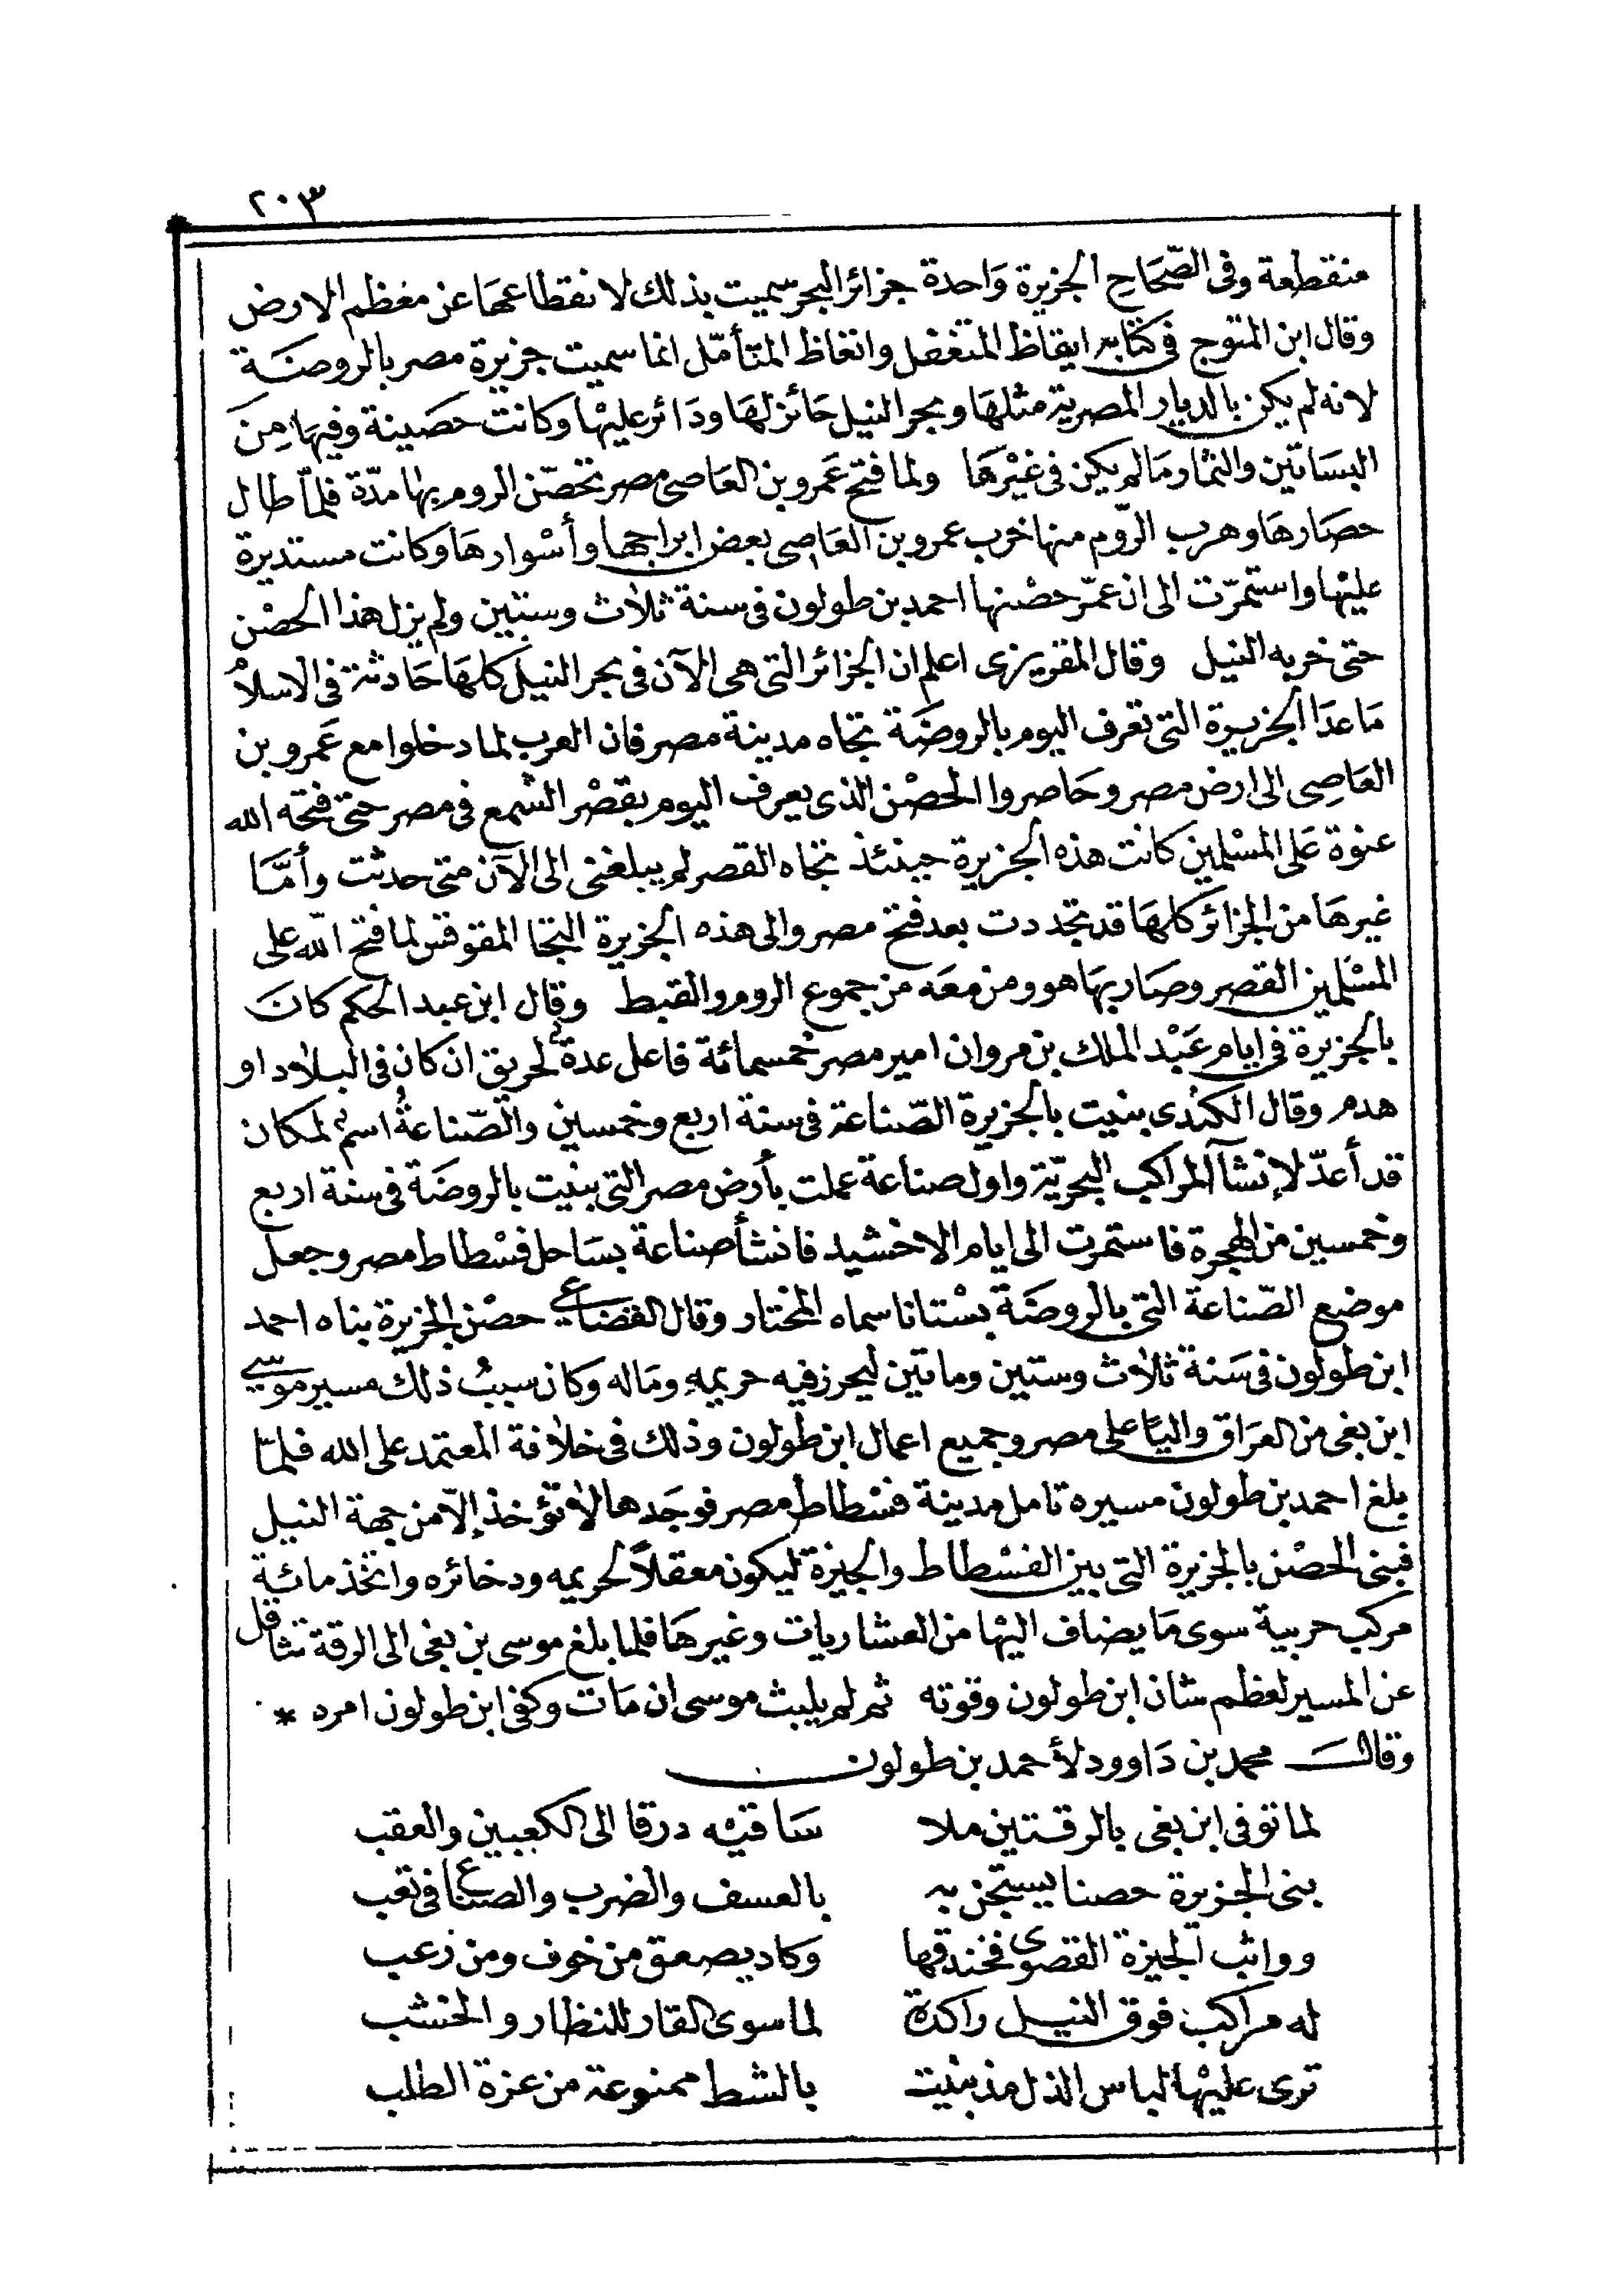 ٢٠٣
منقطعة وفى الصّحَاحِ الجزيرة وَاحدة جزائر البحر سميت بذلك لانقطاعهَا عن مغظم الارض
وقال ابن المتوج فى كتابه ايقاظ المتغفل واتعاظ المتأمّل انما سميت جزيرة مصر بالروضَة
لانه لم يكن بالديار المصرية مثلهَا وبحر النيل حَائز لهَا ودَائر عليْها وكانت حصَينة وفيهَا مِنَ
البسَاتين والثمار مَا لم يكن فى غيْرهَا ولما فتح عَمرو بن العَاصى مصر تحصّن الروم بها مدّة فلمّا طال
حصَارهَا وهرب الرّوم منها خرب عمرو بن العَاصِى بعض ابراجها وأسْوارهَا وكانت مستديرة
عليْها واستمرّت الى ان عمّر حصْنها احمد بن طولون فى سنة ثلاث وستين ولم يزل هذا الحصْن
حتى خربه النيل وقال المقريزى اعلم ان الجزائر التى هى الآن فى بحر النيل كلهَا حَادثة فى الاسلامُ
مَا عدَا الجزيرة التى تعرف اليوم بالروضَة تجاه مدينة مصر فان العرب لما دخلوا مع عَمرو بن
العَاصِى الى ارض مصر وحَاصروا الحصْن الذى يعرف اليوم بقصْر الشمع فى مصر حتى فتحه الله
عنوة عَلى المسْلمين كانت هذه الجزيرة حينئذ تجاه القصر لم يبلغنى الى الآن متى حدثت وأمَّا
غيرهَا من الجزائر كلهَا قد تجددت بعد فتح مصر والى هذه الجزيرة التجا المقوقس لما فتح الله على
المسْلمين القصر وصَار بهَا هو ومن معَه من جموع الروم والقبط وقال ابن عبد الحكم كانَ
بالجزيرة فى ايام عَبْد الملك بن مروان امير مصر خمسمائة فاعل عدة لحريق ان كان فى البلاد او
هدم وقال الكنْدى بنيت بالجزيرة الصّناعة فى سنة اربع وخمسين والصّناعةُ اسم لمكان
قد أعدّ لإنشآ المراكب البحريّة واول صناعة عملت بأرض مصر التى بنيت بالروضَة فى سنة اربع
وخمسين من الهجرة فاستمرت الى ايام الاخشيد فانشأ صناعة بسَاحل فسْطاط مصر وجعل
موضع الصّناعة التى بالروضَة بسْتانا سماه المختار وقال القضَاعي حصْن الجزيرة بناه احمد
ابن طولون فى سَنة ثلاث وستين وماتين ليحرز فيه حريمهِ ومَاله وكان سببُ ذلك مسير موسي
ابن بغى من العرَاق واليًا على مصر وجميع اعمال ابن طولون وذلك فى خلافة المعتمد على الله فلمّا
بلغ احمد بن طولون مسيره تامل مدينة فسْطاط مصر فوجَدها لا تؤخذ إلّا من جهة النيل
فبنى الحصْن بالجزيرة التى بين الفسْطاط والجيزة ليكون معقلاً لحريمه ودخائره واتخذ مائة
مركب حربية سوى مَا يضاف اليْها من العشاريات وغيرهَا فلما بلغ موسى بن بغى الى الرقة تثاقل
عن المسير لعظم شان ابن طولون وقوته ثم لم يلبث موسى ان مَات وكفى ابن طولون امره *
وقالَ محمد بن دَاوود لأحمد بن طولون
لما توفى ابن بغى بالرقتين ملا سَاقيْه درقا الى الكعبين والعقب
بنى الجزيرة حصنا يستجن به بالعسف والضرب والصناع فى تعب
وواثب الجيزة القصوى فخندقها وكاد يصعق من خوف ومن رعب
له مراكب فوق النيل راكدة لما سوى القار للنظار والخشب
ترى عليْها لباس الذل مذ بنيت بالشط ممنوعة من عزة الطلب